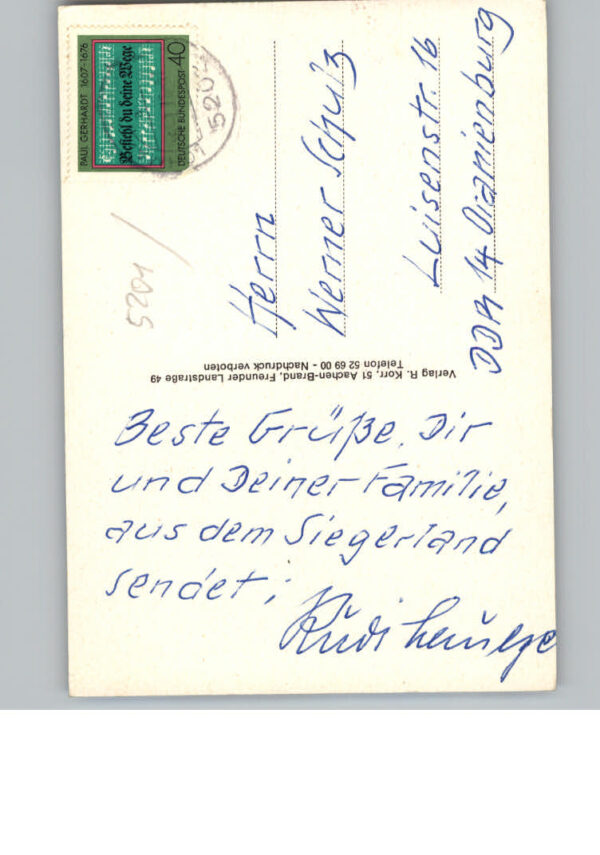 PAUL GERHARDT 1607-1676
Befiehl du deine Wege
DEUTSCHE BUNDESPOST 40
520
5201
Herrn
Werner Schulz
Luisenstr. 16
DDR 14 Oranienburg
Verlag R. Korr, 51 Aachen-Brand, Freunder Landstraße 49
Telefon 52 69 00 - Nachdruck verboten
Beste Grüße, Dir
und Deiner Familie,
aus dem Siegerland
sendet;
Rudi